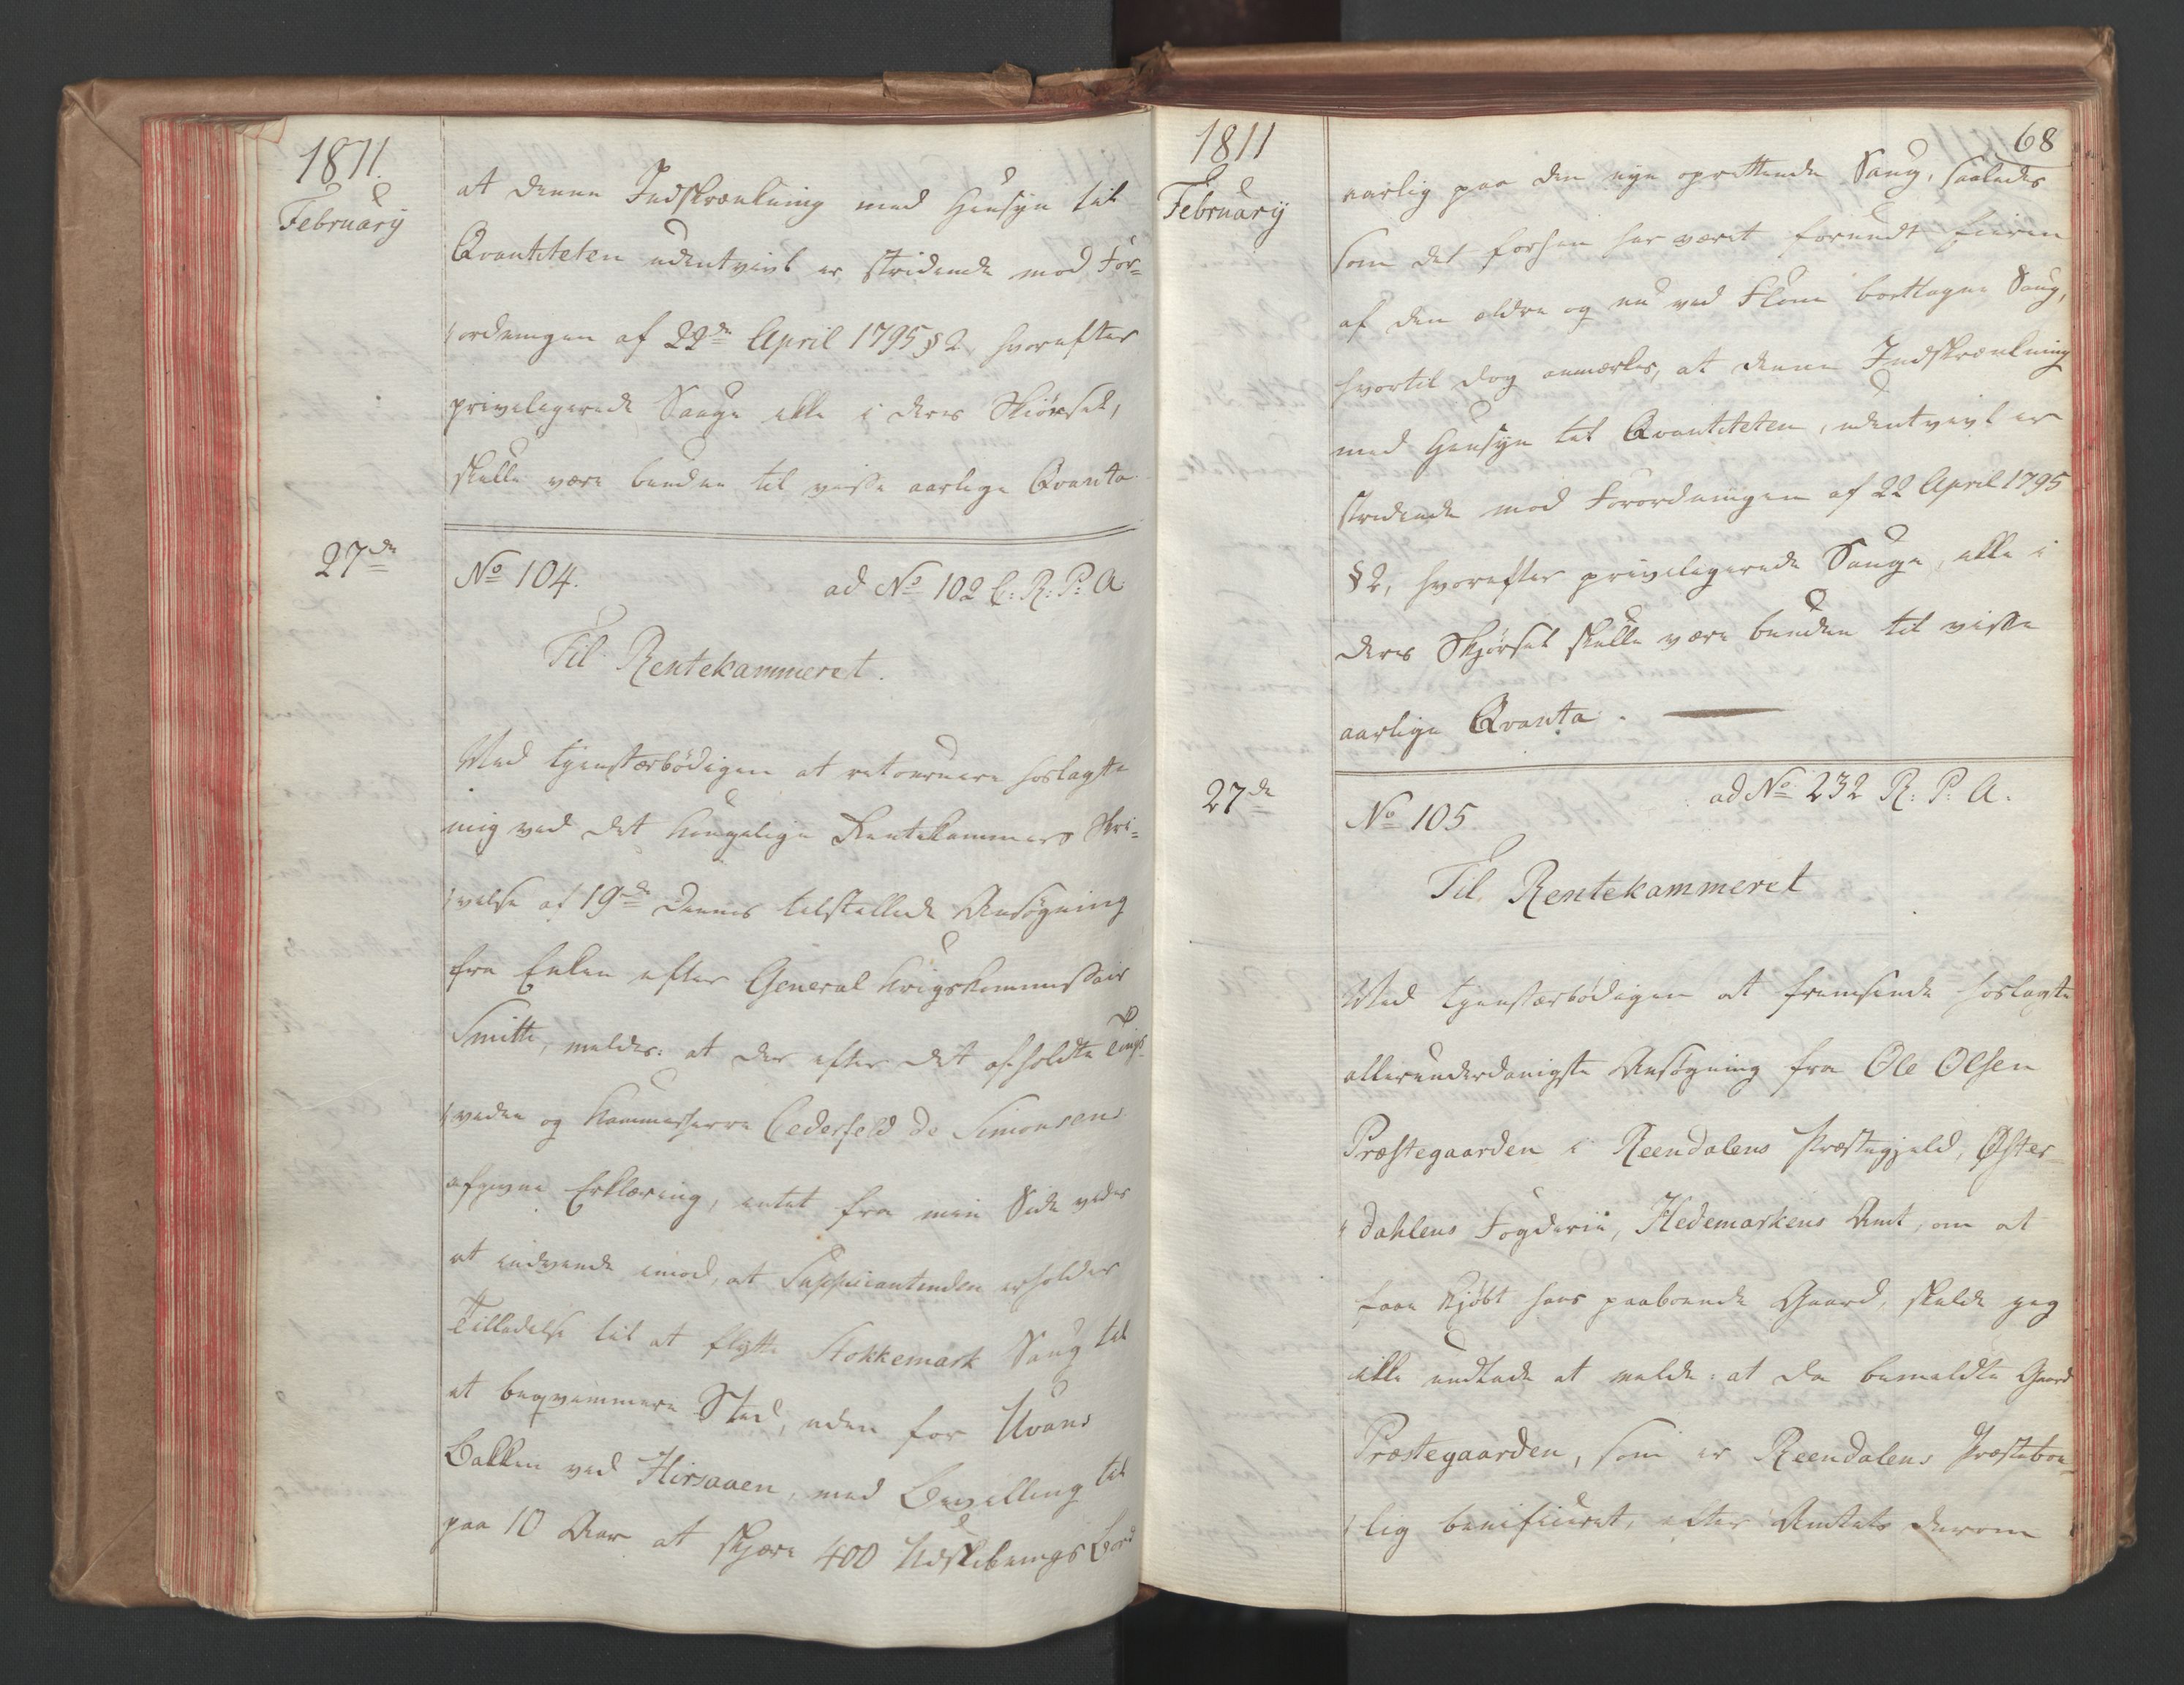 1811.
February
at denne Indskrænkning med Hensyn til
Qvantiteten udentvivl er stridende mod For=
ordningen af 22de April 1795 § 2 hvorefter
privilegerede Sauge ikke i deres Skiørsel,
skulle være bunden til visse aarlige Qvanta
27de
No 104.
ad No 102 C: R: P: A
Til Rentekammeret.
Med tjenstærbødigen at retournere hoslagte
mig ved det kongelige Rentekammers Skri=
velse af 19de dennes tilstillede Ansøgning
fra Enken efter General Krigskommissair
Smitt, meldes: at der efter det afholdte
og Kammerherre Cederfeld de Simonsens
afgivne Erklæring, intet fra min Side vides
at indvende imod, at Supplicantinden erholder
Tilladelse til at flytte Stokkemark Saug til
et beqvemmere Sted, uden for Uvans
Bakken ved Hirsaaen, med Bevilling til
paa 10 Aar at skjære 400 Udskibnings Bord
1811
February
68
aarlig paa den nye oprettende Saug, saaledes
som det forhen har været forundt Eieren
af den ældre og nu ved Flom borttagne Saug,
hvortil dog anmærkes, at denne Indskrænkning
med Hensyn til Qvantiteten, udentvivl er
stridende mod Forordningen af 22 April 1795
§ 2, hvorefter privilegerede Sauge, ikke i
deres Skjørsel skulle være bunden til visse
aarlige Qvanta.
27de
No 105
ad No 232 R: P: A.
Til Rentekammeret
Med tjenstærbødigen at fremsende hoslagte
allerunderdanigste Ansøgning fra Ole Olsen
Præstegaarden i Reendalens Præstegjeld, Øster=
dahlens Fogderie, Hedemarkens Amt, om at
faae kjøbt hans paaboende Gaard, skulde jeg
ikke undlade at melde: at da bemeldte Gaard
Præstegaarden, som er Reendalens Præstebo=
lig benificeret, efter Amtets derom